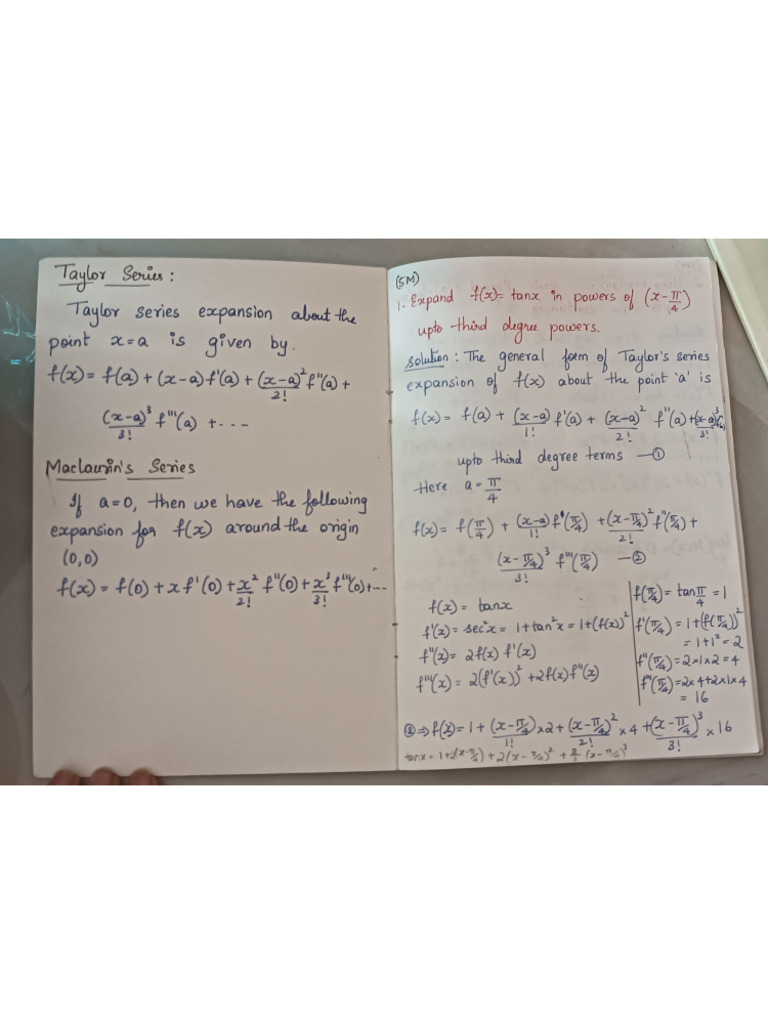 Taylor Series :
Taylor series expansion about the
point x=a is given by.
f(x) = f(a) + (x-a) f'(a) + (x-a)²/2! f''(a) +
(x-a)³/3! f'''(a) + ---
Maclaurin's Series
If a=0, then we have the following
expansion for f(x) around the origin
(0,0)
f(x) = f(0) + x f'(0) + x²/2! f''(0) + x³/3! f'''(0) + ---
(5M)
1. Expand f(x)= tanx in powers of (x-π/4)
upto third degree powers.
Solution : The general form of Taylor's series
expansion of f(x) about the point 'a' is
f(x) = f(a) + (x-a)/1! f'(a) + (x-a)²/2! f''(a) + (x-a)³/3!
upto third degree terms —①
Here a = π/4
f(x) = f(π/4) + (x-a)/1! f'(π/4) + (x-π/4)²/2! f''(π/4) +
(x-π/4)³/3! f'''(π/4) —②
f(x) = tanx
f'(x) = sec²x = 1+tan²x = 1+(f(x))²
f''(x) = 2f(x) f'(x)
f'''(x) = 2(f'(x))² + 2f(x)f''(x)
f(π/4) = tan π/4 = 1
f'(π/4) = 1+(f(π/4))²
= 1+1² = 2
f''(π/4) = 2×1×2 = 4
f'''(π/4) = 2×4+2×1×4
= 16
② ⇒ f(x) = 1 + (x-π/4)/1! ×2 + (x-π/4)²/2! ×4 + (x-π/4)³/3! ×16
tanx = 1+2(x-π/4) + 2(x-π/4)² + (x-π/4)³